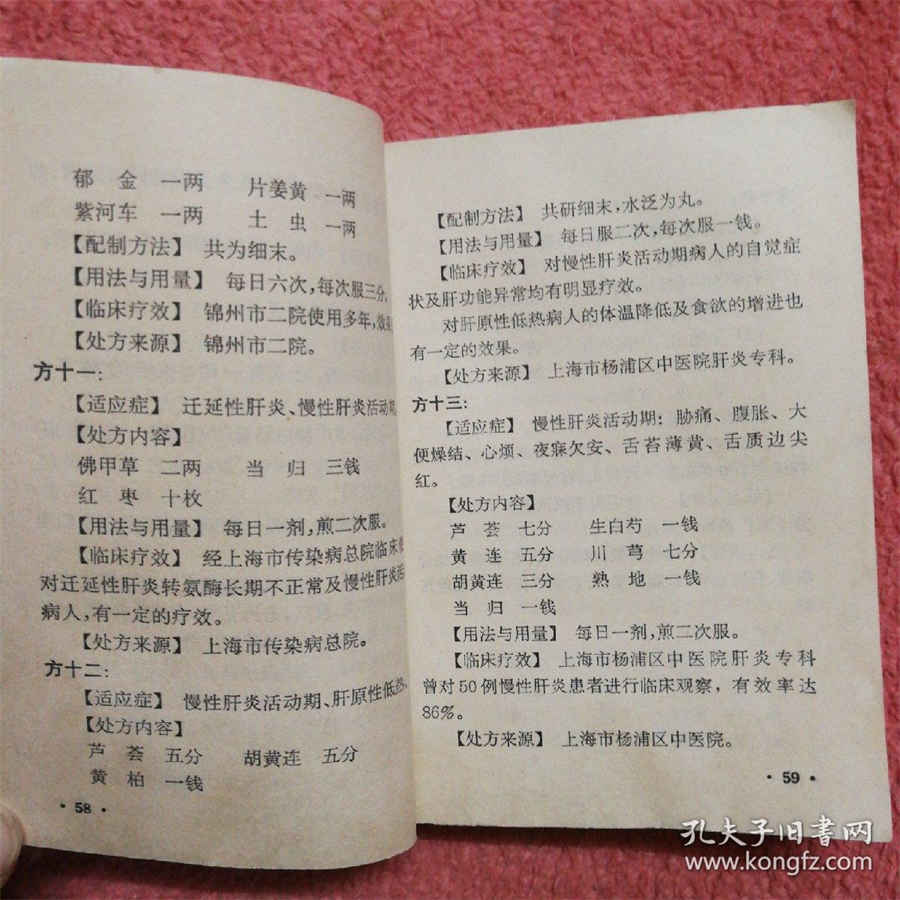 郁 金 一两 片姜黄 一两
紫河车 一两 土 虫 一两
【配制方法】 共为细末。
【用法与用量】 每日六次，每次服三分，
【临床疗效】 锦州市二院使用多年，效
【处方来源】 锦州市二院。
方十一：
【适应症】 迁延性肝炎、慢性肝炎活动期
【处方内容】
佛甲草 二两 当 归 三钱
红 枣 十枚
【用法与用量】 每日一剂，煎二次服。
【临床疗效】 经上海市传染病总院临床
对迁延性肝炎转氨酶长期不正常及慢性肝炎活
病人，有一定的疗效。
【处方来源】 上海市传染病总院。
方十二：
【适应症】 慢性肝炎活动期、肝原性低热。
【处方内容】
芦 荟 五分 胡黄连 五分
黄 柏 一钱
·58·
【配制方法】 共研细末，水泛为丸。
【用法与用量】 每日服二次，每次服一钱。
【临床疗效】 对慢性肝炎活动期病人的自觉症
状及肝功能异常均有明显疗效。
对肝原性低热病人的体温降低及食欲的增进也
有一定的效果。
【处方来源】 上海市杨浦区中医院肝炎专科。
方十三：
【适应症】 慢性肝炎活动期：胁痛、腹胀、大
便燥结、心烦、夜寐欠安、舌苔薄黄、舌质边尖
红。
【处方内容】
芦 荟 七分 生白芍 一钱
黄 连 五分 川 芎 七分
胡黄连 三分 熟 地 一钱
当 归 一钱
【用法与用量】 每日一剂，煎二次服。
【临床疗效】 上海市杨浦区中医院肝炎专科
曾对50例慢性肝炎患者进行临床观察，有效率达
86%。
【处方来源】 上海市杨浦区中医院。
·59·
孔夫子旧書网
www.kongfz.com